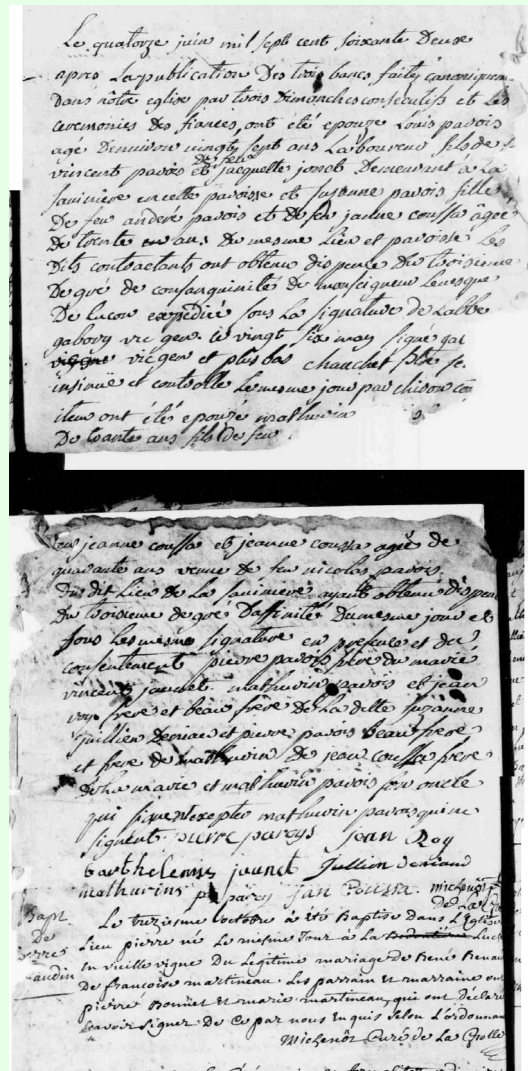 Le quatorze juin mil sept cent soixante Deux
apres La publication Des trois bancs faits canoniquem
Dans nôtre eglise par trois Dimanches consecutifs et Les
ceremonies Des fiances, ont été epouze Louis pavois
agé Denviron vingt sept ans Laboureur fils de f
vincent pavois et De feu jacquette jonet Demeurant à La
saviniere en cette paroisse et suzanne pavois fille
De feu andere pavois et De feu janne coussa agée
De trente ans Du mesme Lieu et paroisse Les
Dits contractants ont obtenu dispence Du troisieme
Degré de consanguinité De monseigneur Levesque
De Lucon expedié sous La signature de Labbe
gabory vic gen. le vingt six may signé gab
vic gen et plus bas chauchet ptre se.
insinué et controllé Le mesme jour par chison
ont été epouzé mathurin
De trante ans fils De feu
jeanne coussa et jeanne coussa agée de
quarante ans veuve de feu nicolas pavois
Du dit Lieu De La saviniere ayants obtenu dispen
Du troisieme degré Daffinité Du mesme jour et
sous Les mesme signature en presence et du
consentement pierre pavois du marié
vincent jaunet mathurin pavois et jean
roy frere et beau frere De La ditte suzanne
jullien Deniaud et pierre pavois beau frere
et frere de mathurin De jean coussa frere
De La mariée et mathurin pavois son oncle
qui signent excepté mathurin pavois qui ne
signent. pierre parois jean Roy
barthelemis jaunet Jullien deniaud
mathurins parois Jan Coussa. michenot
de La G
Bapt.
De
pierre
Le trezieme octobre à été Baptisé Dans L'Eglise
Lieu pierre né Le mesme Jour à La
en vieille vigne Du Legitime mariage de René Renau
De françoise martineau Les parrain et marraine on
pierre Bonnet et marie martineau, qui ont Déclaré
sçavoir signer De ce par nous Enquis selon L'ordonnan
Michenôt Curé de La Grolle